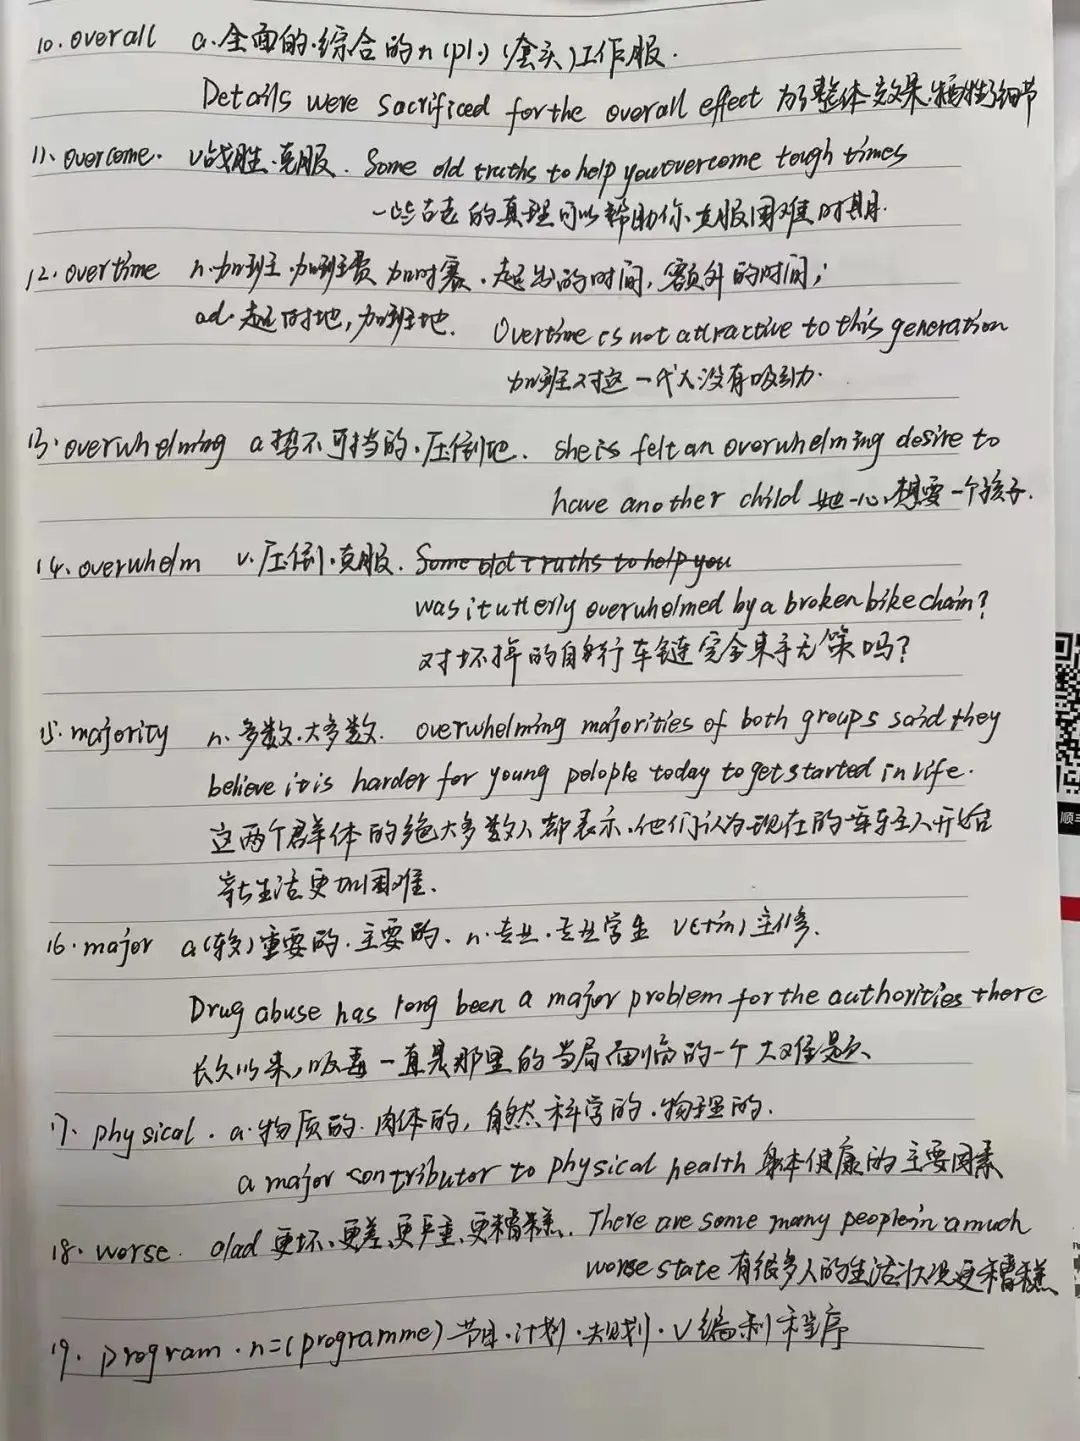 10. overall a.全面的.综合的 n(pl.)(套头)工作服.
Details were sacrificed for the overall effect 为了整体效果.牺牲了细节
11. overcome. v战胜.克服. Some old truths to help you overcome tough times
一些古老的真理可以帮助你克服困难时期.
12. overtime n.加班.加班费 加时赛.超出的时间,额外的时间;
ad.超时地,加班地. Overtime is not attractive to this generation
加班对这一代人没有吸引力.
13. overwhelming a势不可挡的.压倒地. she is felt an overwhelming desire to
have another child 她一心想要一个孩子.
14. overwhelm v.压倒.克服. Some old truths to help you
was it utterly overwhelmed by a broken bike chain?
对坏掉的自行车链完全束手无策吗?
15. majority n.多数.大多数. overwhelming majorities of both groups said they
believe it is harder for young pelople today to get started in life.
这两个群体的绝大多数人都表示.他们认为现在的年轻人开始
新生活更加困难.
16. major a(较)重要的.主要的. n.专业.专业学生 v(+in)主修.
Drug abuse has long been a major problem for the authorities there
长久以来,吸毒一直是那里的当局面临的一个大难题.
17. physical. a.物质的.肉体的,自然科学的.物理的.
a major contributor to physical health 身体健康的主要因素
18. worse. a/ad 更坏、更差、更严重、更糟糕. There are some many people in a much
worse state 有很多人的生活状况更糟糕
19. program. n=(programme)节目.计划.规划. v编制程序
顺丰